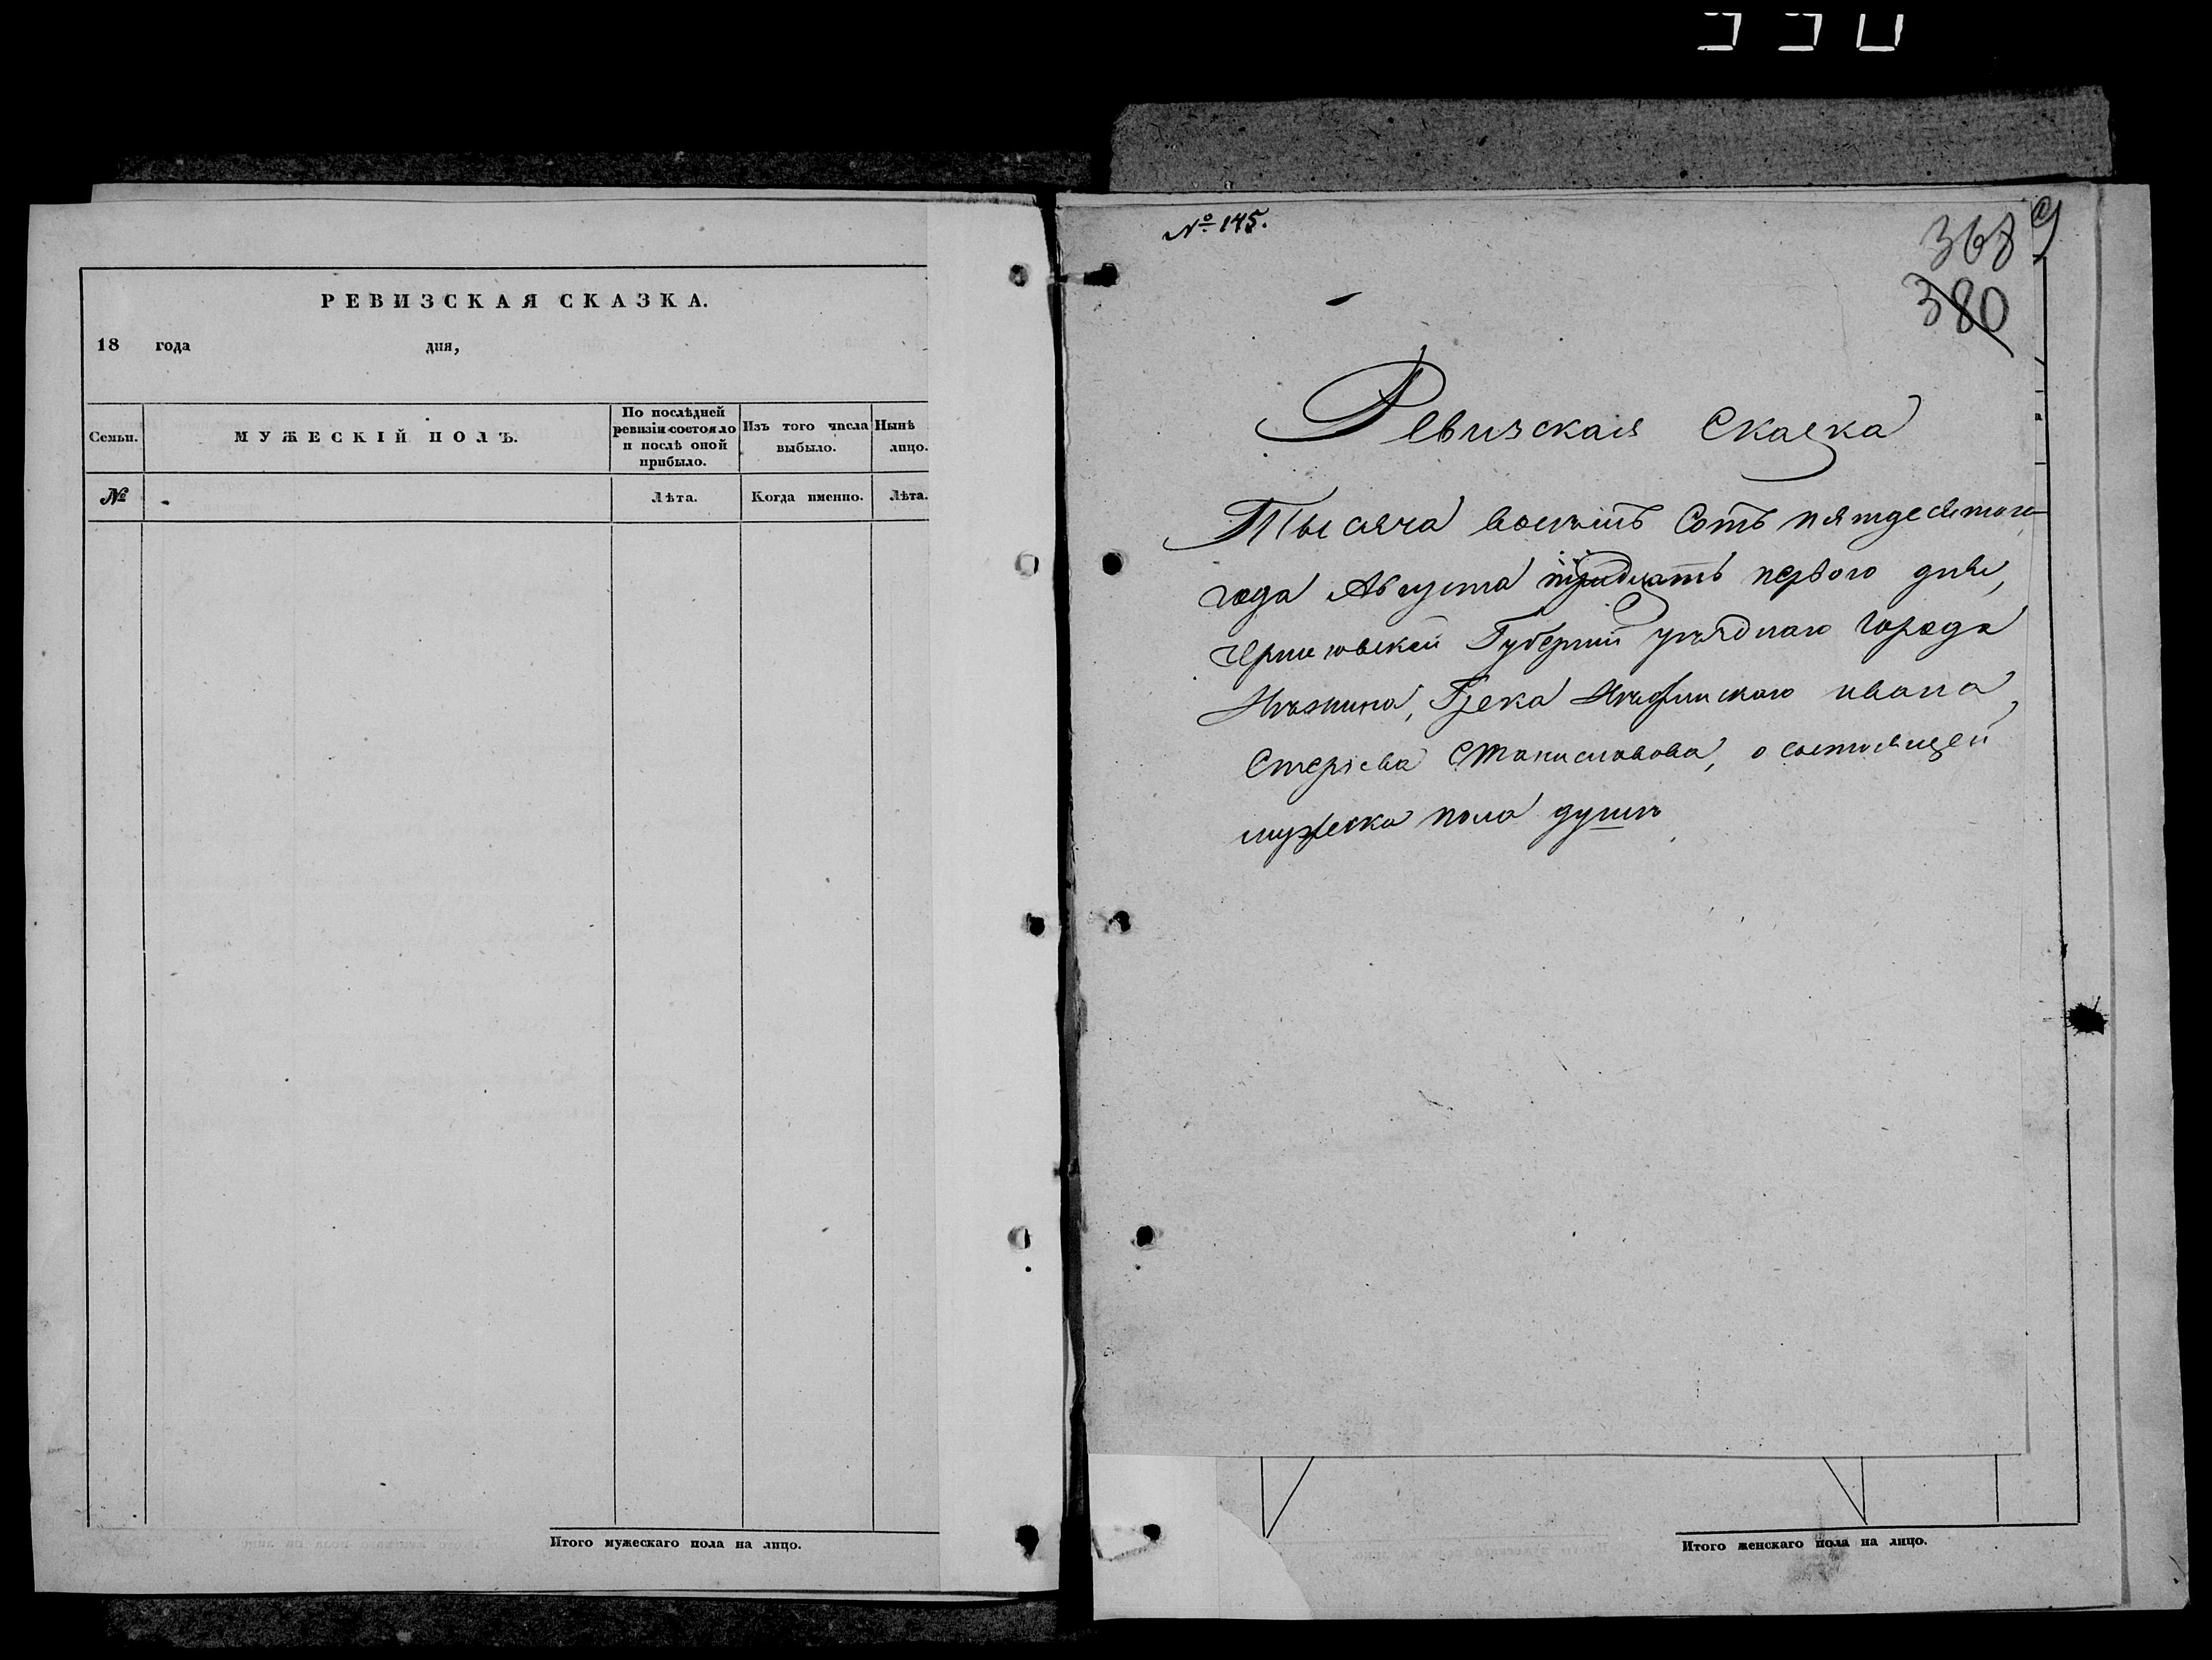 РЕВИЗСКАЯ СКАЗКА.
18 года дня,
Семьи.
МУЖЕСКІЙ ПОЛЪ.
По послѣдней
ревизіи состояло
и послѣ оной
прибыло.
Изъ того числа
выбыло.
Нынѣ
лицо.
№
Лѣта.
Когда именно.
Лѣта.
Итого мужескаго пола на лицо.
№ 145.
368
380
Ревизская Сказка
Тысяча восемь Сотъ пятдесятого
года Августа тридцать первого дня,
Черниговской Губерніи уѣздного Города
Нѣжина, Грека Нѣжинского ивана
Стеріева Станиславова, о состоящей
мужеска пола душъ
Итого женскаго пола на лицо.